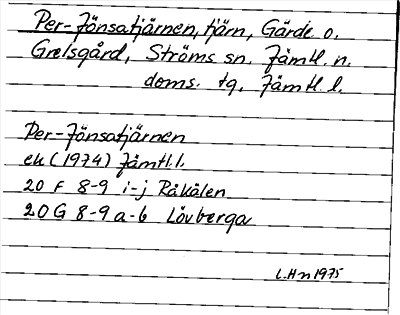 Per-Jönsatjärnen, tjärn, Gärde o.
Grelsgård, Ströms sn. Jämtl. n.
doms. tg. Jämtl. l.
Per-Jönsatjärnen
ek (1974) Jämtl. l.
20 F 8-9 i-j Råkålen
20 G 8-9 a-b Lövberga
L.Hn 1975